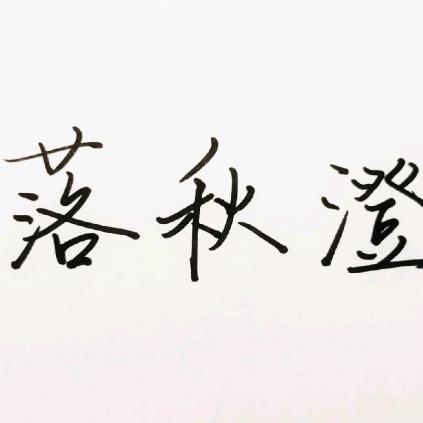 落秋澄